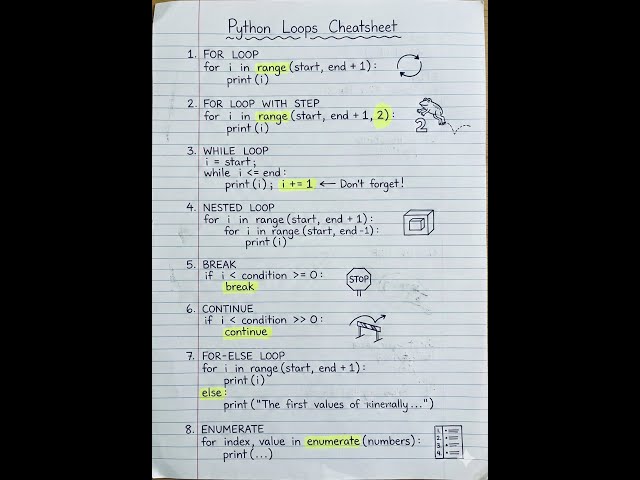 Python Loops Cheatsheet
1. FOR LOOP
for i in range(start, end + 1):
print(i)
2. FOR LOOP WITH STEP
for i in range(start, end + 1, 2):
print(i)
2
3. WHILE LOOP
i = start;
while i <= end:
print(i); i += 1 ← Don't forget!
4. NESTED LOOP
for i in range(start, end + 1):
for i in range(start, end-1):
print(i)
5. BREAK
if i < condition >= 0:
break
STOP
6. CONTINUE
if i < condition >> 0:
continue
7. FOR-ELSE LOOP
for i in range(start, end + 1):
print(i)
else:
print("The first values of ...")
8. ENUMERATE
for index, value in enumerate(numbers):
print(...)
1.
2.
3.
4.